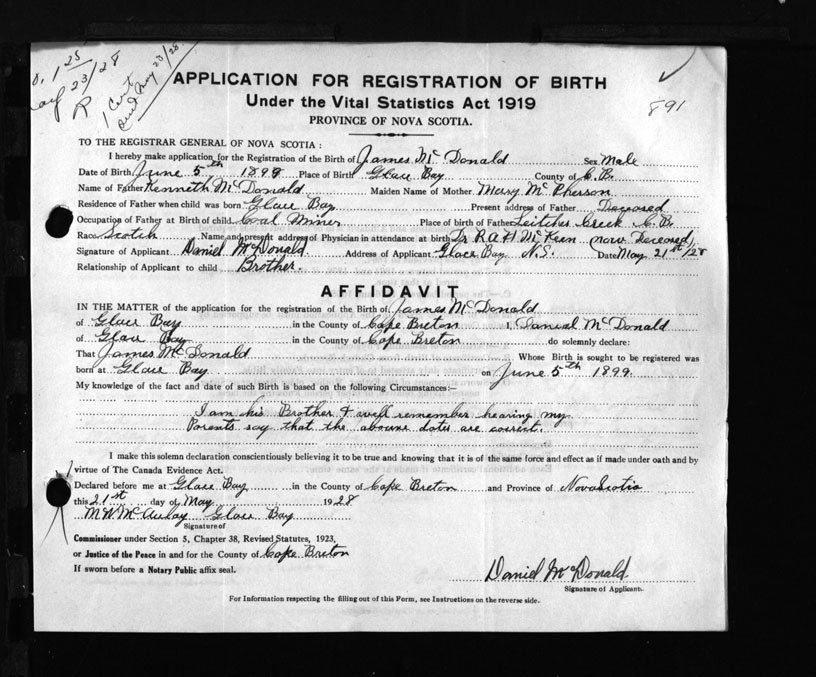 1 25
23/28
R
1 Cert
May 23/28
891
APPLICATION FOR REGISTRATION OF BIRTH
Under the Vital Statistics Act 1919
PROVINCE OF NOVA SCOTIA.
TO THE REGISTRAR GENERAL OF NOVA SCOTIA:
I hereby make application for the Registration of the Birth of James McDonald Sex Male
Date of Birth June 5th 1899 Place of Birth Glace Bay County of C.B.
Name of Father Kenneth McDonald Maiden Name of Mother Mary McPherson
Residence of Father when child was born Glace Bay Present address of Father Deceased
Occupation of Father at Birth of child Coal Miner Place of birth of Father Leitches Creek C.B.
Race Scotch Name and present address of Physician in attendance at birth Dr R A H McKeen (now Deceased)
Signature of Applicant Daniel McDonald. Address of Applicant Glace Bay N.S. Date May 21st/28
Relationship of Applicant to child Brother.
AFFIDAVIT
IN THE MATTER of the application for the registration of the Birth of James McDonald
of Glace Bay in the County of Cape Breton I, Danial McDonald
of Glace Bay in the County of Cape Breton do solemnly declare:
That James McDonald Whose Birth is sought to be registered was
born at Glace Bay on June 5th 1899
My knowledge of the fact and date of such Birth is based on the following Circumstances:—
I am his Brother & well remember hearing my
Parents say that the above dates are correct.
I make this solemn declaration conscientiously believing it to be true and knowing that it is of the same force and effect as if made under oath and by
virtue of The Canada Evidence Act.
Declared before me at Glace Bay in the County of Cape Breton and Province of Nova Scotia
this 21st day of May 1928
M W McAulay Glace Bay
Signature of
Commissioner under Section 5, Chapter 38, Revised Statutes, 1923,
or Justice of the Peace in and for the County of Cape Breton
If sworn before a Notary Public affix seal.
Daniel McDonald
Signature of Applicant.
For Information respecting the filling out of this Form, see Instructions on the reverse side.